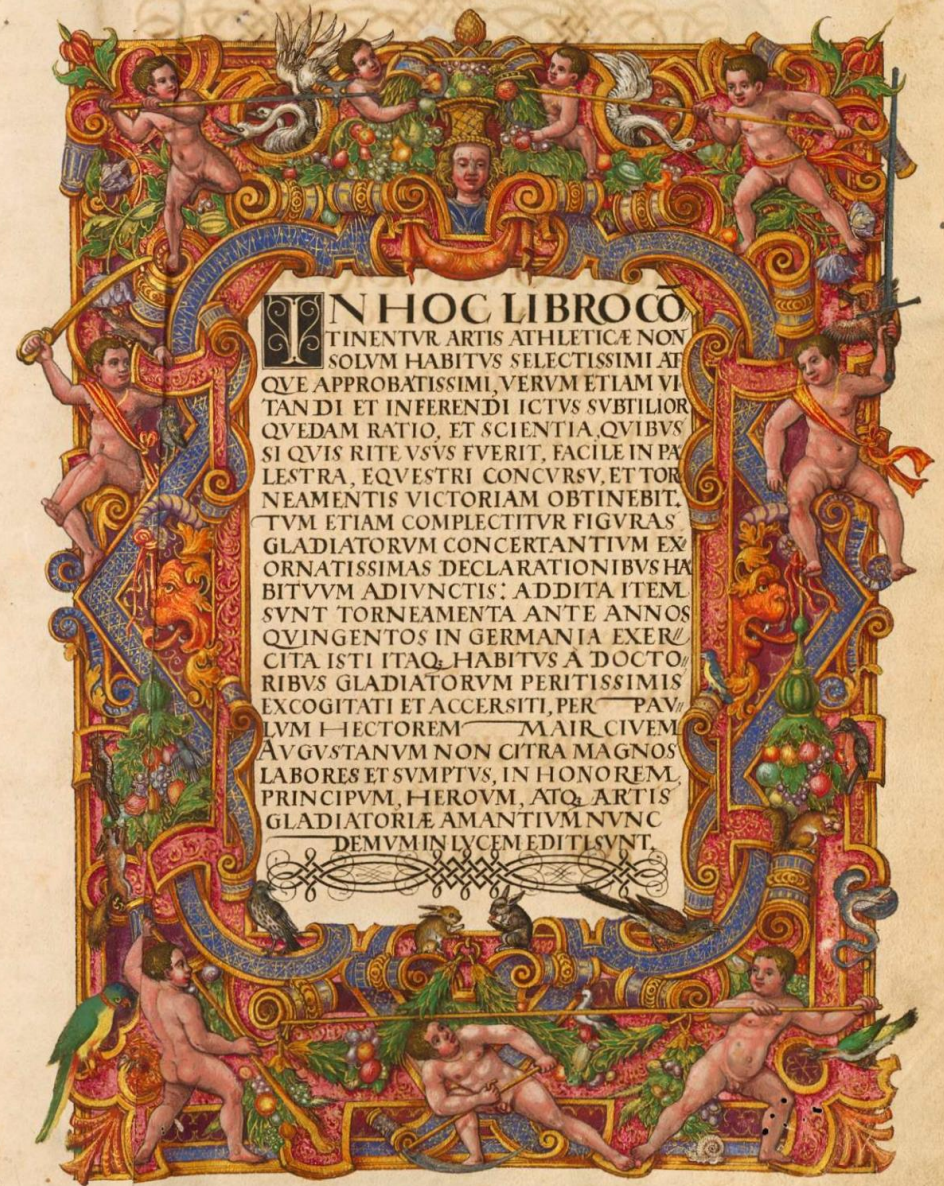 IN HOC LIBRO CŌ
TINENTVR ARTIS ATHLETICÆ NON
SOLVM HABITVS SELECTISSIMI AT
QVE APPROBATISSIMI, VERVM ETIAM VI
TANDI ET INFERENDI ICTVS SVBTILIOR
QVEDAM RATIO, ET SCIENTIA, QVIBVS
SI QVIS RITE VSVS FVERIT, FACILE IN PA
LESTRA, EQVESTRI CONCVRSV, ET TOR
NEAMENTIS VICTORIAM OBTINEBIT.
TVM ETIAM COMPLECTITVR FIGVRAS
GLADIATORVM CONCERTANTIVM EX
ORNATISSIMAS DECLARATIONIBVS HA
BITVVM ADIVNCTIS: ADDITA ITEM
SVNT TORNEAMENTA ANTE ANNOS
QVINGENTOS IN GERMANIA EXER//
CITA ISTI ITAQ; HABITVS À DOCTO//
RIBVS GLADIATORVM PERITISSIMIS
EXCOGITATI ET ACCERSITI, PER PAV//
LVM HECTOREM MAIR CIVEM
AVGVSTANVM NON CITRA MAGNOS
LABORES ET SVMPTVS, IN HONOREM
PRINCIPVM, HEROVM, ATQ; ARTIS
GLADIATORIÆ AMANTIVM NVNC
DEMVM IN LVCEM EDITI SVNT.